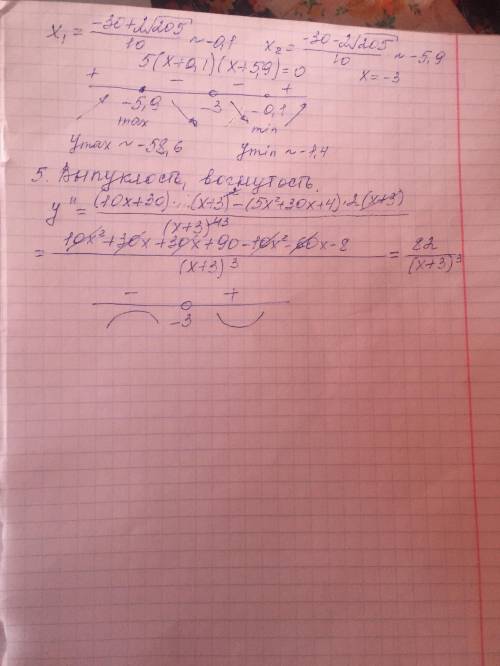 x₁ = (-30+2√205)/10 ~ -0,1 x₂ = (-30-2√205)/10 ~ -5,9
5(x+0,1)(x+5,9)=0 x=-3
+ - - +
-5,9 -3 -0,1
max min
ymax ~ -58,6 ymin ~ -1,4
5. Выпуклость, вогнутость.
y'' = ((10x+30)·(x+3)² - (5x²+30x+4)·2(x+3))/(x+3)⁴³
= (10x²+30x+30x+90-10x²-60x-8)/(x+3)³ = 82/(x+3)³
- +
-3